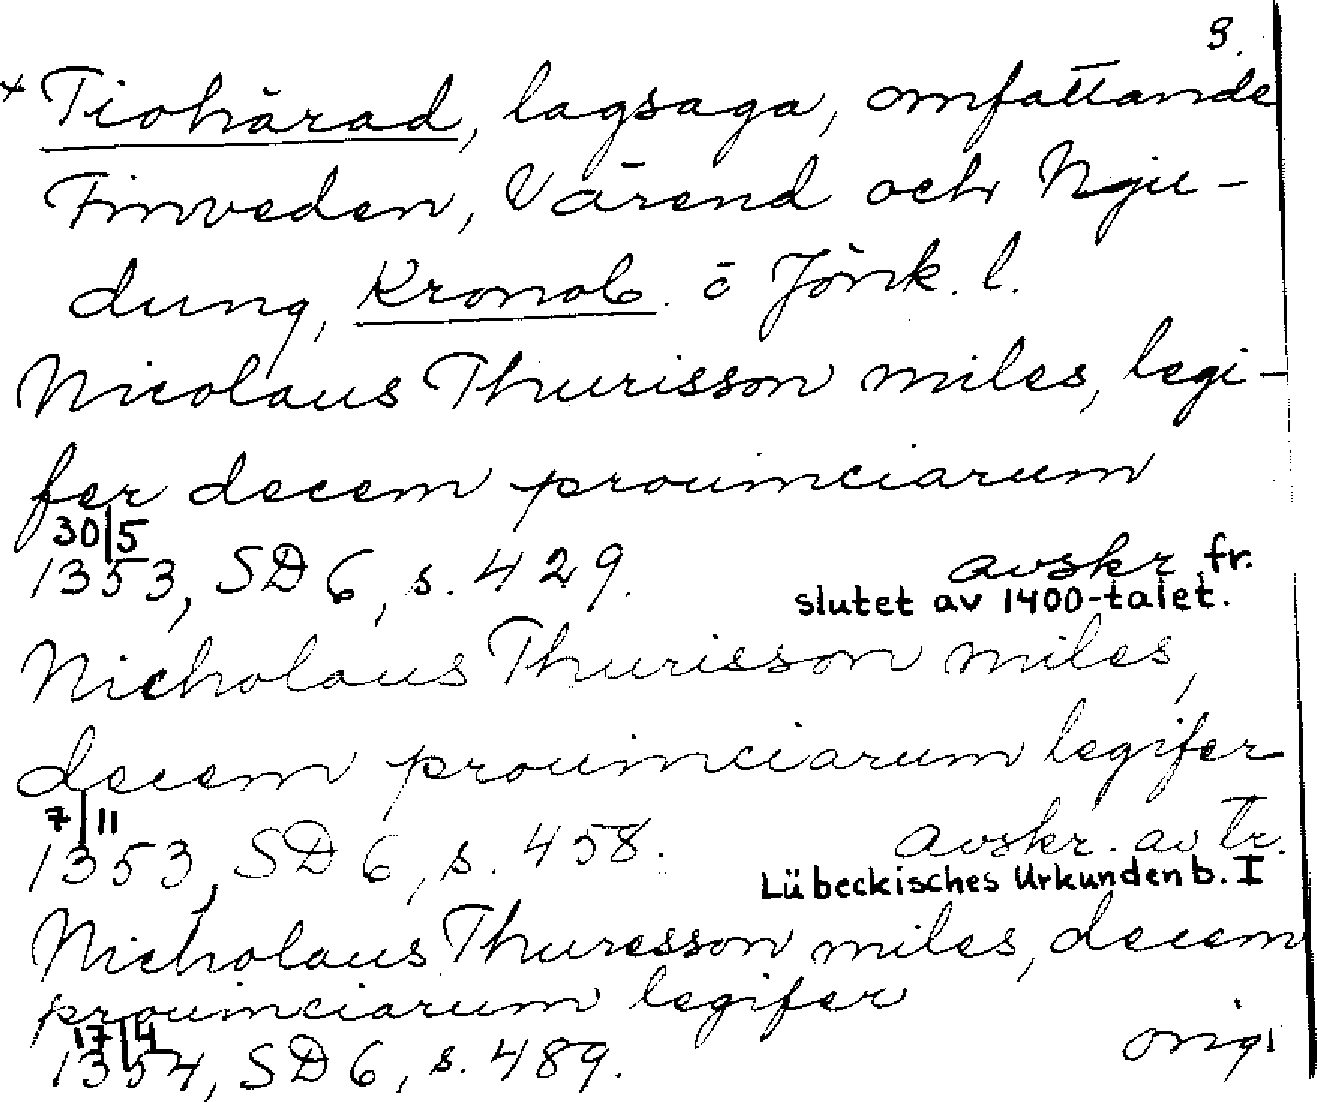 3.
+ Tiohärad, lagsaga, omfattande
Finveden, Värend och Nju-
dung, Kronob. o Jönk. l.
Nicolaus Thurisson miles, legi-
fer decem prouinciarum
30/5
1353, SD 6, s. 429. avskr fr.
slutet av 1400-talet.
Nicholaus Thurisson miles,
decem prouinciarum legifer
7/11
1353, SD 6, s. 458. avskr. av tr.
Lübeckisches Urkundenb. I
Nicholaus Thuresson miles, decem
prouinciarum legifer
17/4
1354, SD 6, s. 489. orig.